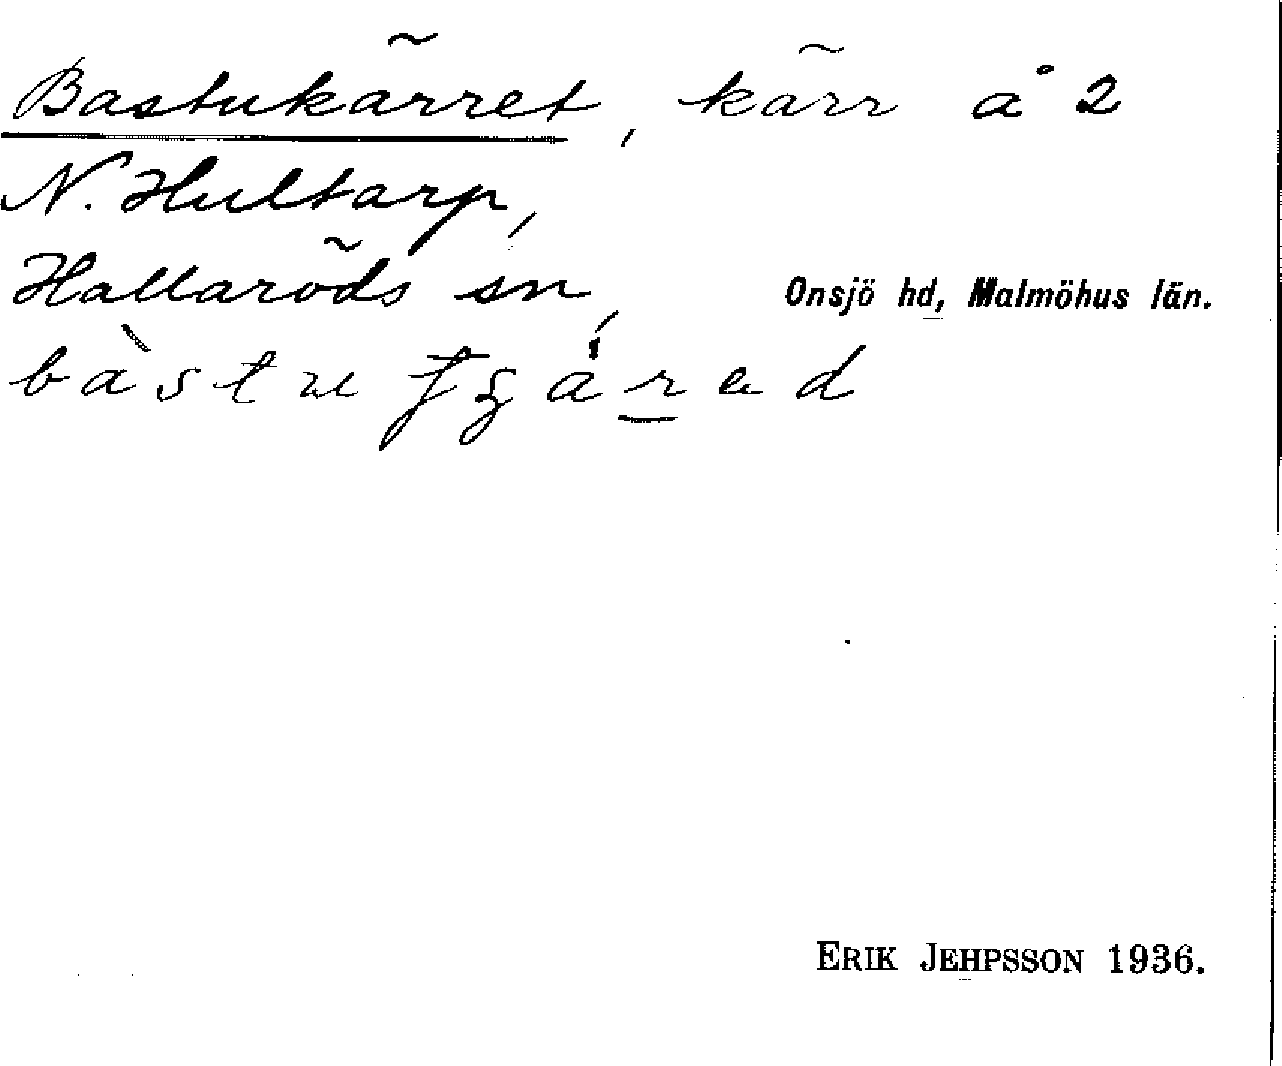 Bastukärret, kärr å 2
N. Hultarp,
Hallaröds sn,
Onsjö hd, Malmöhus län.
bàstu
ERIK JEHPSSON 1936.